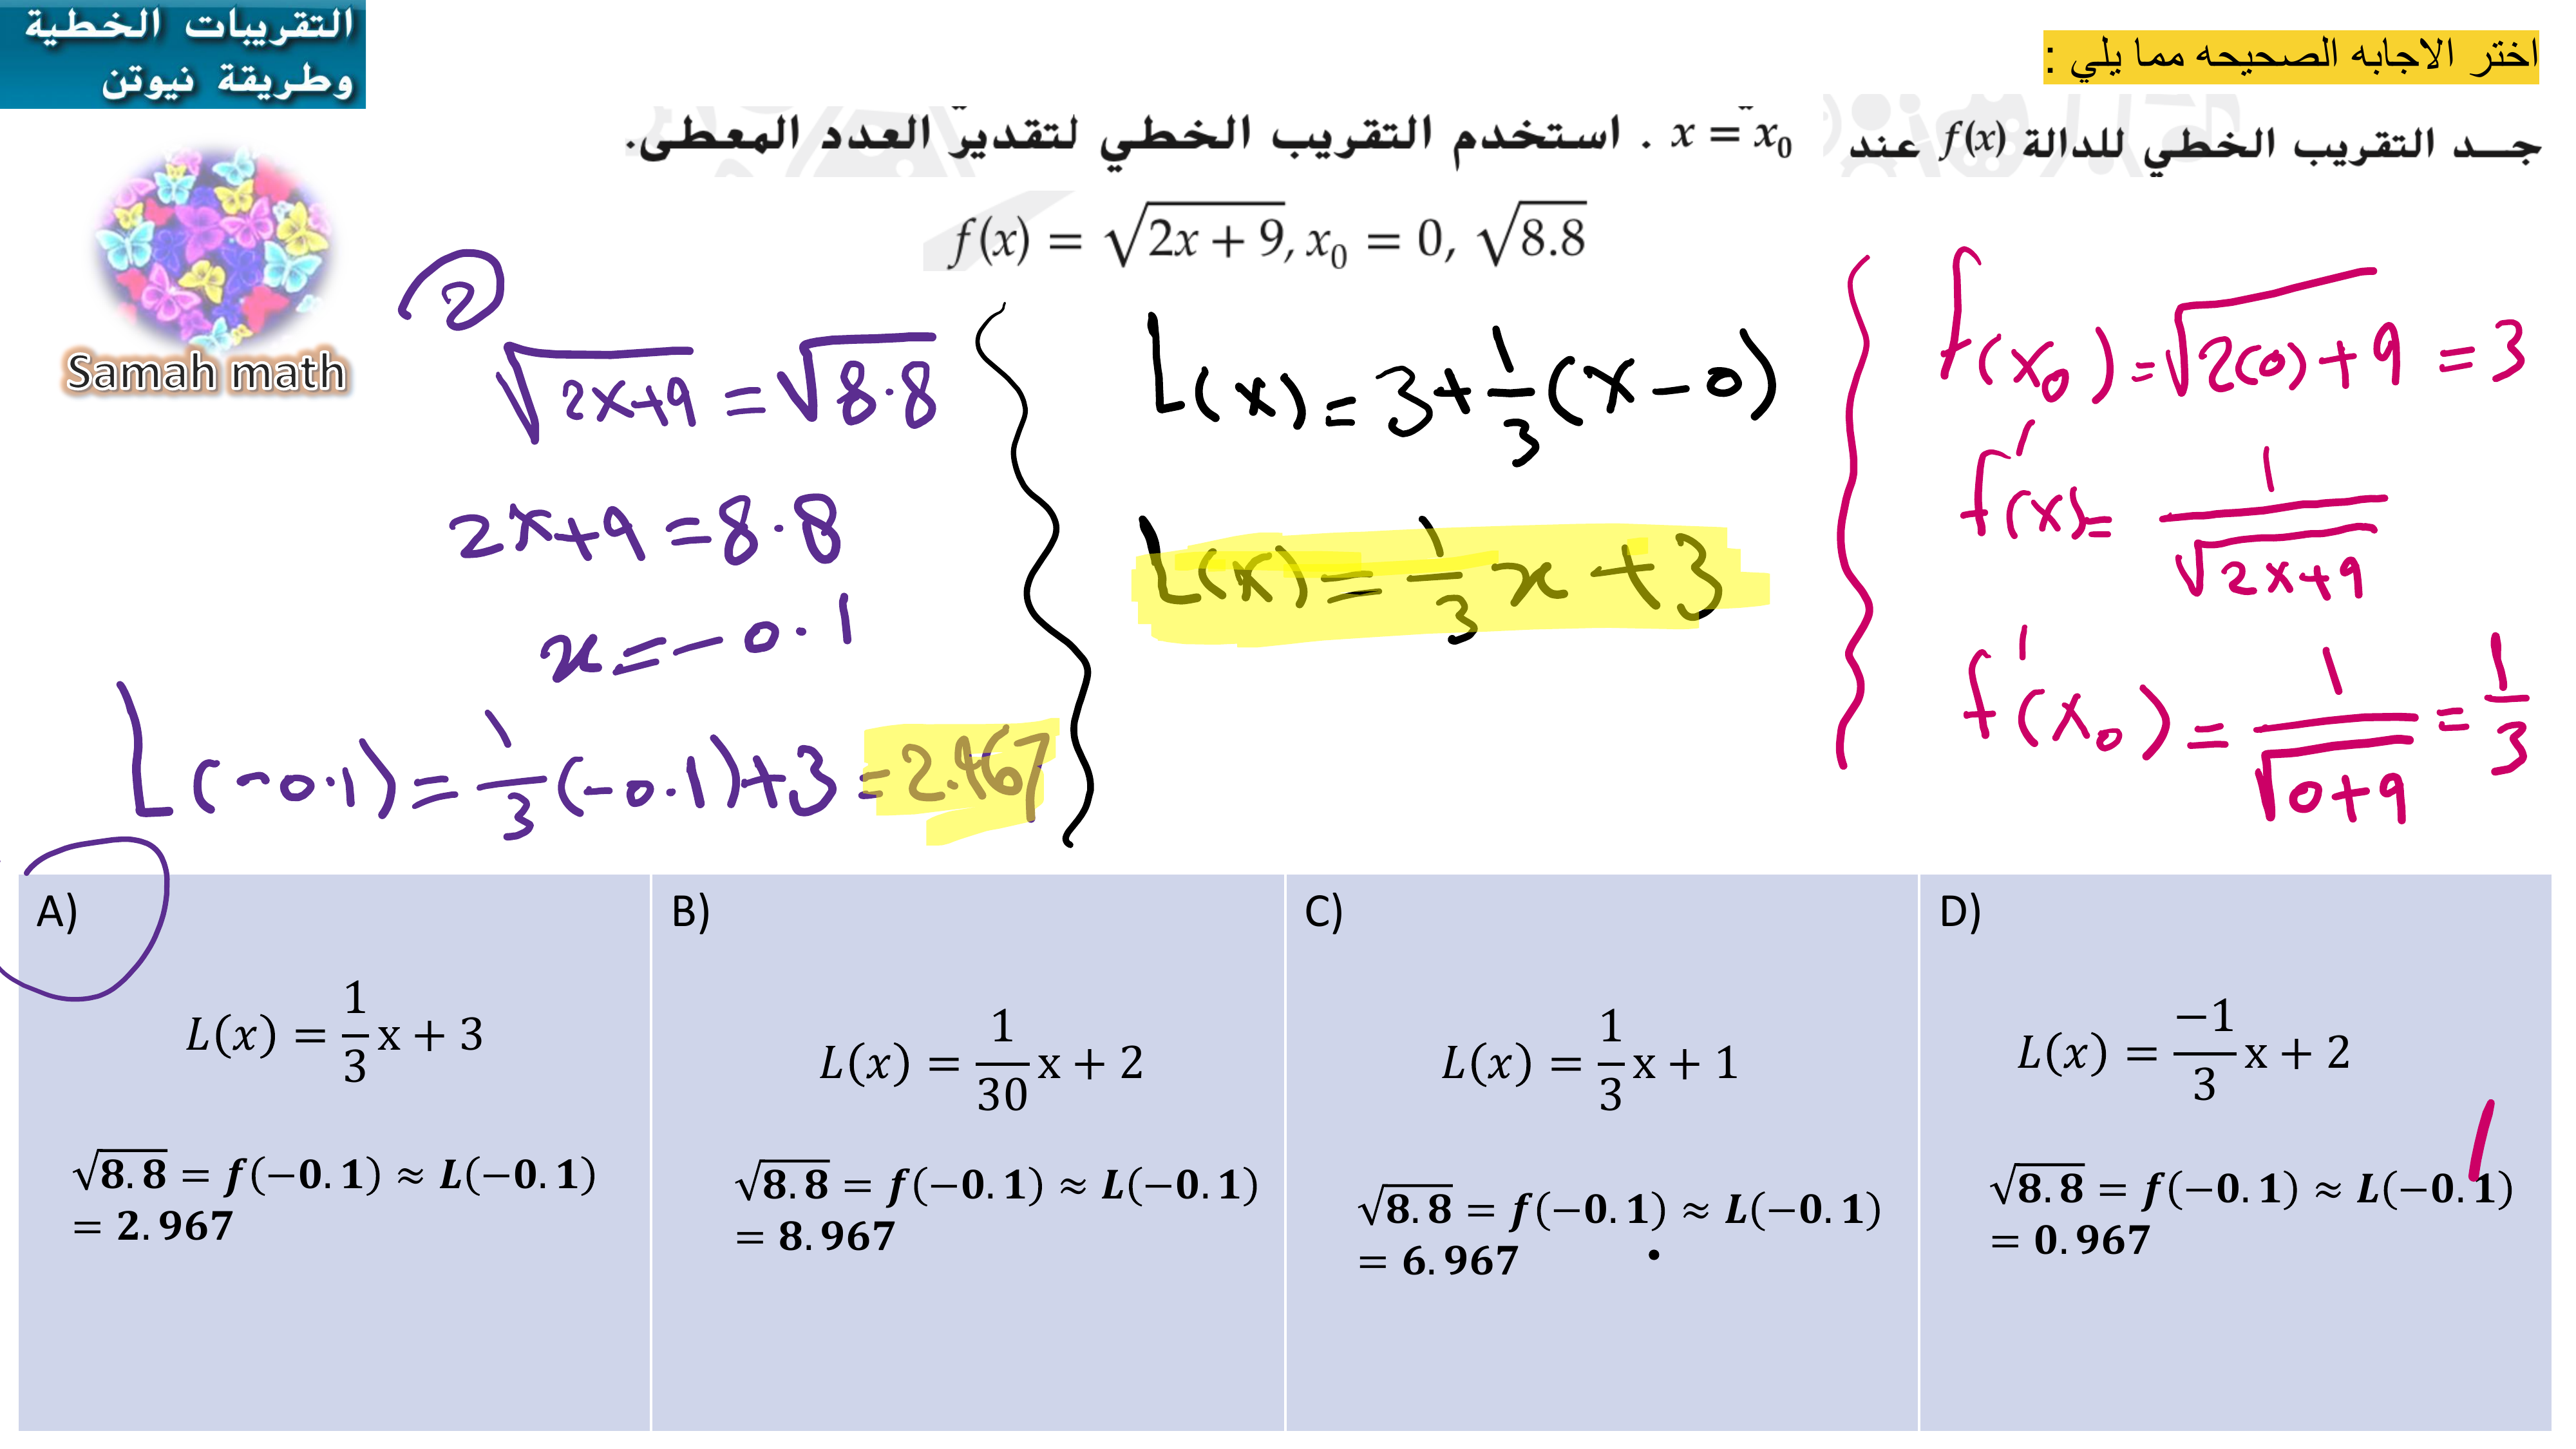 التقريبات الخطية
وطريقة نيوتن
اختر الاجابه الصحيحه مما يلي :
جـــد التقريب الخطي للدالة f(x) عند x = x₀ . استخدم التقريب الخطي لتقدير العدد المعطى.
f(x) = √(2x + 9), x₀ = 0, √8.8
Samah math
f(x₀) = √(2(0)+9) = 3
f'(x) = 1/√(2x+9)
f'(x₀) = 1/√(0+9) = 1/3
L(x) = 3 + 1/3 (x - 0)
L(x) = 1/3 x + 3
2
√(2x+9) = √8.8
2x+9 = 8.8
x = -0.1
L(-0.1) = 1/3 (-0.1)+3 = 2.967
A)
L(x) = 1/3 x + 3
√8.8 = f(−0.1) ≈ L(−0.1)
= 2.967
B)
L(x) = 1/30 x + 2
√8.8 = f(−0.1) ≈ L(−0.1)
= 8.967
C)
L(x) = 1/3 x + 1
√8.8 = f(−0.1) ≈ L(−0.1)
= 6.967
D)
L(x) = −1/3 x + 2
√8.8 = f(−0.1) ≈ L(−0.1)
= 0.967